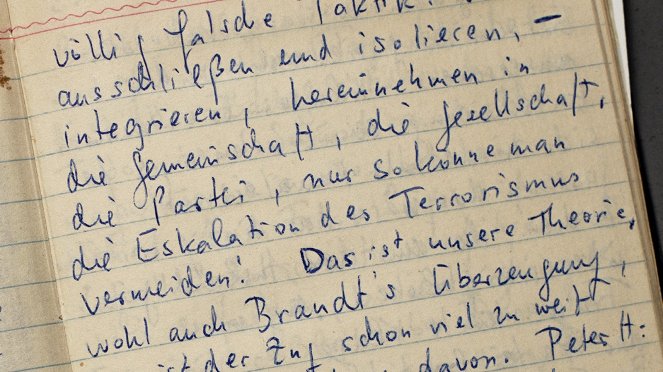 völlig falsche Taktik:
ausschließen und isolieren, –
integrieren, hereinnehmen in
die Gemeinschaft, die Gesellschaft,
die Partei, nur so könne man
die Eskalation des Terrorismus
vermeiden! Das ist unsere Theorie,
wohl auch Brandt's Überzeugung,
ist der Zug schon viel zu weit
davon. Peter H: